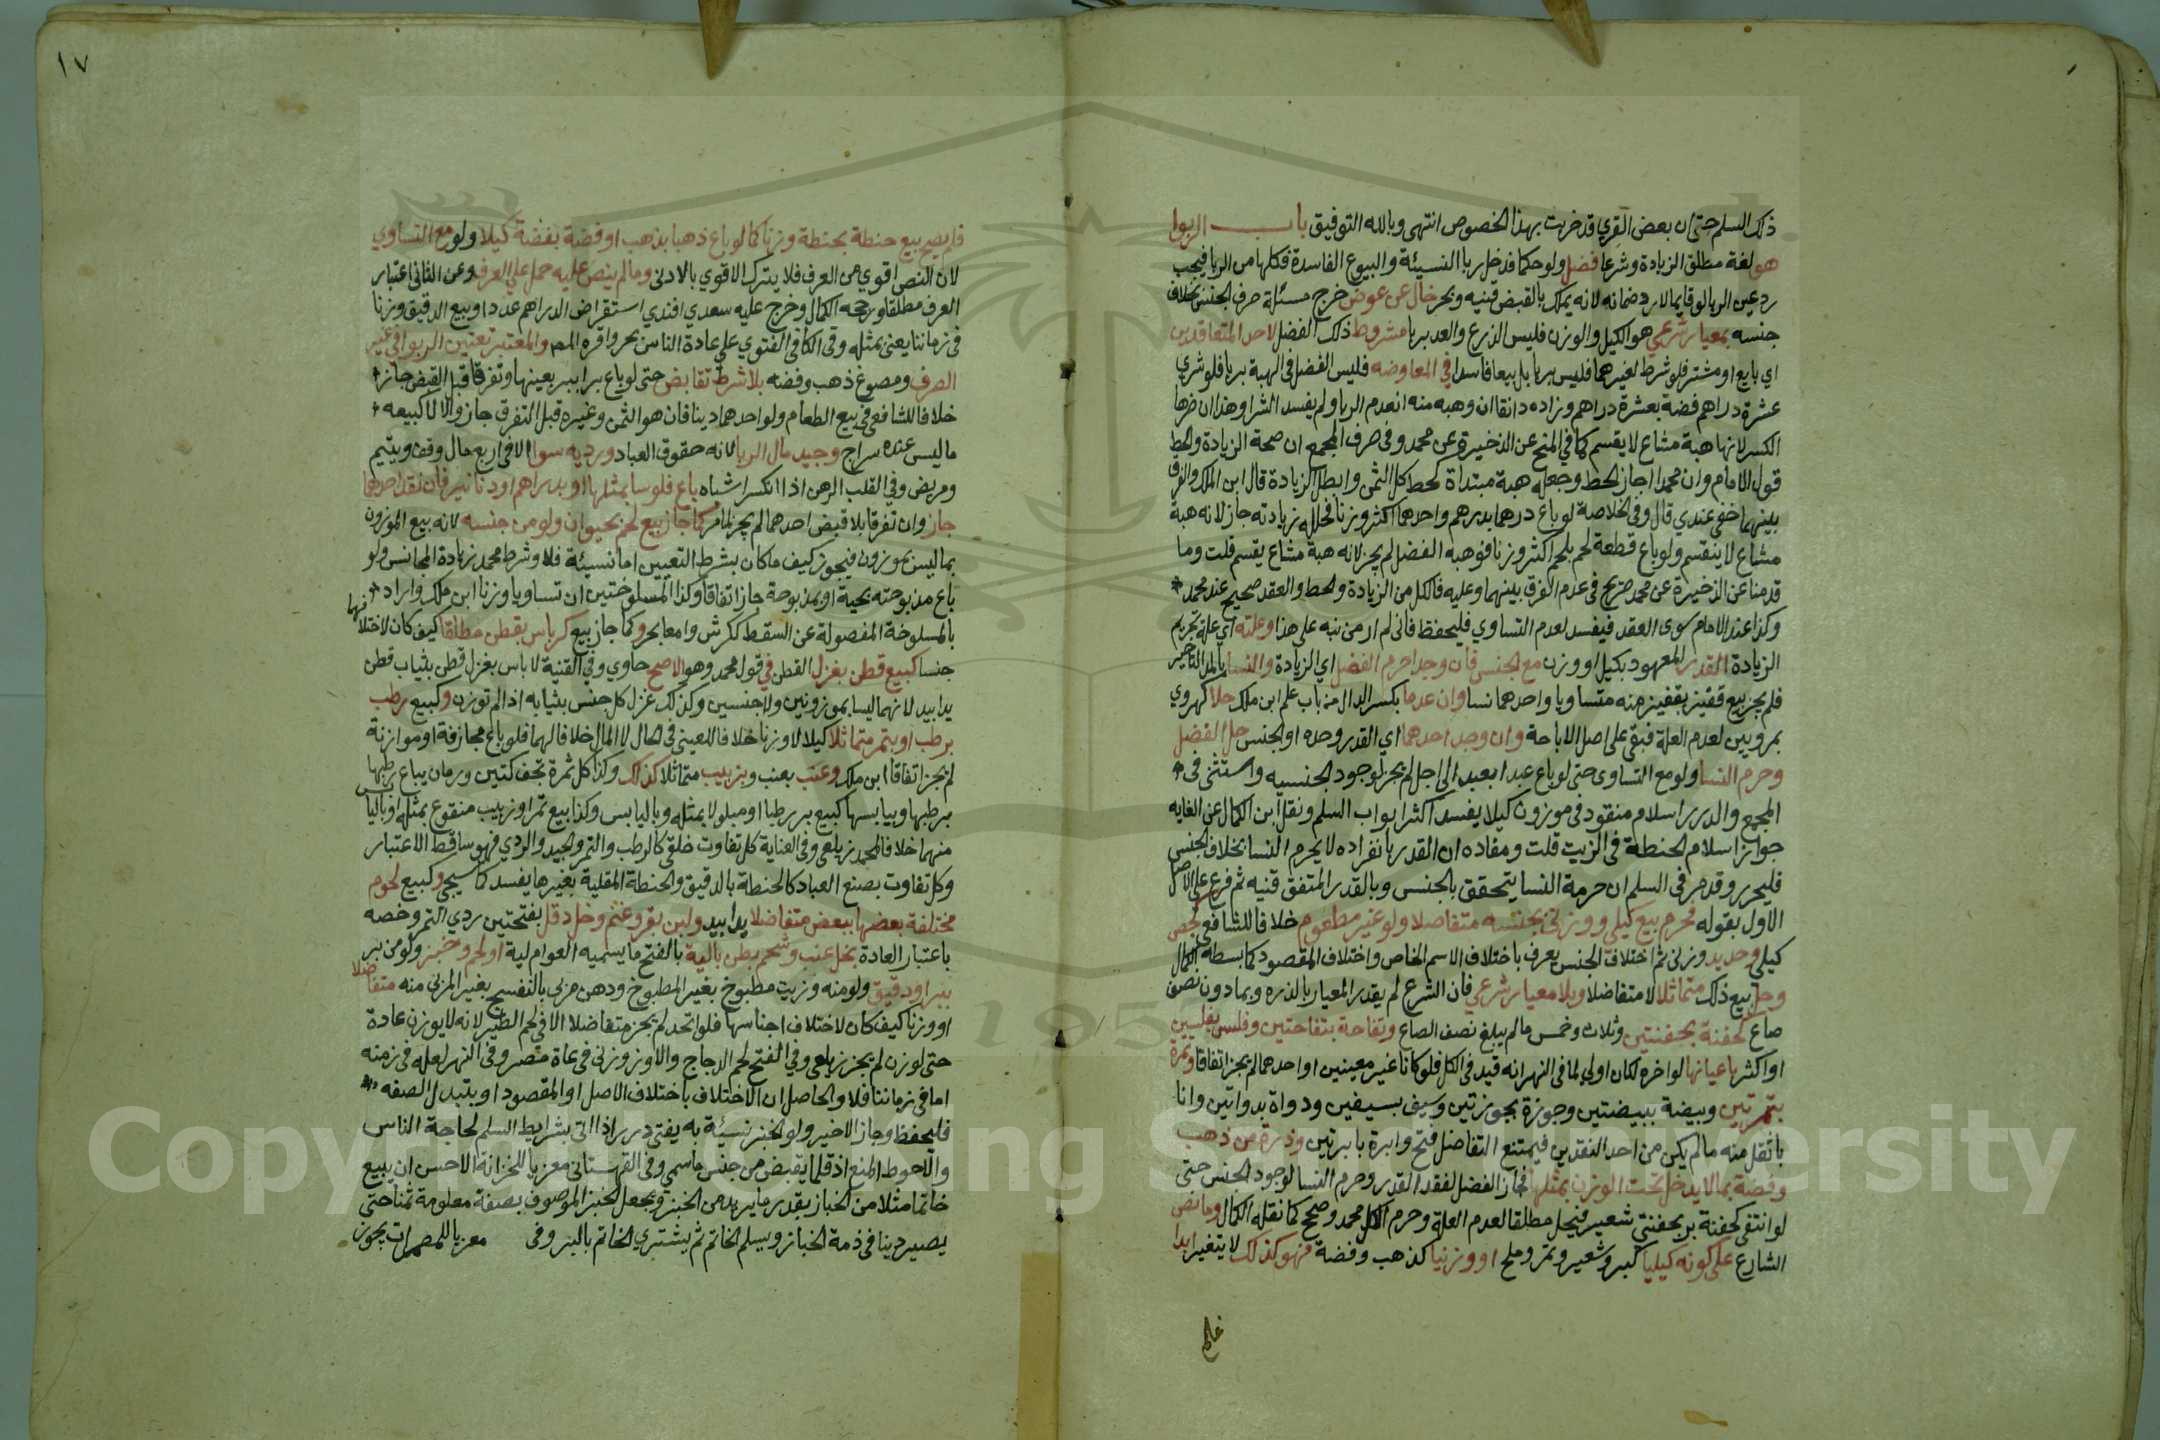 ذلك السلم حتى ان بعض القرى قد خربت بهذا الخصوص انتهى وبالله التوفيق باب الربوا
هو لغة مطلق الزيادة وشرعا فضل ولو حكما فدخل ربا النسيئة والبيوع الفاسدة فكلها من الربا فيجب
رد عين الربا لو قايما لا رد ضمانه لانه يملك بالقبض قنيه وبحر خال عن عوض خرج مسئلة صرف الجنس بخلاف
جنسه بمعيار شرعي هو الكيل والوزن فليس الذرع والعد بربا مشروط ذلك الفضل لاحد المتعاقدين
اي بايع او مشتر فلو شرط لغيرهما فليس بربا بل بيعا فاسدا في المعاوضه فليس الفضل في الهبة بربا فلو شري
عشرة دراهم فضة بعشرة دراهم وزاده دانقا ان وهبه منه انعدم الربا ولم يفسد الشرا وهذا ان ضرها
الكسر لانها هبة مشاع لا يقسم كما في المنح عن الذخيرة عن محمد وفي صرف المجمع ان صحة الزيادة والحط
قول الامام وان محمدا اجاز الحط وجعله هبة مبتدأة كحط كل الثمن وابطل الزيادة قال ابن الملك والفرق
بينهما خفي عندي قال وفي الخلاصة لو باع درهما بدرهم واحدهما اكثر وزنا فحلله زيادته جاز لانه هبة
مشاع لا ينقسم ولو باع قطعة لحم بلحم اكثر وزنا فوهبه الفضل لم يجز لانه هبة مشاع يقسم قلت وما
قدمنا عن الذخيرة عن محمد صريح في عدم الفرق بينهما وعليه فالكل من الزيادة والحط والعقد صحيح عند محمد
وكذا عند الامام سوى العقد فيفسد لعدم التساوي فليحفظ فاني لم ار من نبه على هذا وعلته اي علة تحريم
الزيادة القدر المعهود بكيل او وزن مع الجنس فان وجدا حرم الفضل اي الزيادة والنسا بالمد التاخير
فلم يجز بيع قفيز بقفيز منه متساويا واحدهما نسا وان عدما بكسر الدال من باب علم ابن ملك حلا كهروي
بمرويين لعدم العلة فبقي على اصل الاباحة وان وجد احدهما اي القدر وحده او الجنس حل الفضل
وحرم النسا ولو مع التساوي حتى لو باع عبدا بعبد الى اجل لم يجز لوجود الجنسيه واستثنى في
المجمع والدرر اسلام منقود في موزون كيلا يفسد اكثر ابواب السلم ونقل ابن الكمال عن الغايه
جواز اسلام الحنطة في الزيت قلت ومفاده ان القدر بانفراده لا يحرم النسا بخلاف الجنس
فليحرر وقد مر في السلم ان حرمة النسا يتحقق بالجنس وبالقدر المتفق قنيه ثم فرع على الاصل
الاول بقوله فحرم بيع كيلي ووزني بجنسه متفاضلا ولو غير مطعوم خلافا للشافعي كجص
كيلي وحديد وزني ثم اختلاف الجنس يعرف باختلاف الاسم الخاص واختلاف المقصود كما بسطه الكمال
وحل بيع ذلك متماثلا لا متفاضلا وبلا معيار شرعي فان الشرع لم يقدر المعيار بالذره وبما دون نصف
صاع كحفنة بحفنتين وثلاث وخمس ما لم يبلغ نصف الصاع وتفاحة بتفاحتين وفلس بفلسين
او اكثر باعيانها لو اخره لكان اولى لما في النهر انه قيد في الكل فلو كانا غير معينين او احدهما لم يجز اتفاقا وتمرة
بتمرتين وبيضة ببيضتين وجوزة بجوزتين وسيف بسيفين ودواة بدواتين وانا
باثقل منه ما لم يكن من احد النقدين فيمتنع التفاضل فتح وابرة بابرتين وذرة من ذهب
وفضة بما لا يدخل تحت الوزن بمثلها فجاز الفضل لفقد القدر وحرم النسا لوجود الجنس حتى
لو انتفى كحفنة بر بحفنتي شعير فيحل مطلقا لعدم العلة وحرم الكل محمد وصحح كما نقله الكمال وما نص
الشارع على كونه كيليا كبر وشعير وتمر وملح او وزنيا كذهب وفضة فهو كذلك لا يتغير ابدا
فلم
١٧
فلم يصح بيع حنطة بحنطة وزنا كما لو باع ذهبا بذهب او فضة بفضة كيلا ولو مع التساوي
لان النص اقوي من العرف فلا يترك الاقوي بالادنى وما لم ينص عليه حمل علي العرف وعن الثاني اعتبار
العرف مطلقا ورجحه الكمال وخرج عليه سعدي افندي استقراض الدراهم عددا وبيع الدقيق وزنا
في زماننا يعني بمثله وفي الكافي الفتوي علي عادة الناس بحر واقره المص والمعتبر تعيين الربوا في غير
الصرف ومصوغ ذهب وفضه بلا شرط تقابض حتى لو باع برا ببر بعينها وتفرقا قبل القبض جاز
خلافا للشافعي في بيع الطعام ولو احدهما دينا فان هو الثمن وغيره قبل التفرق جاز والا لا كبيعه
ما ليس عنده سراج وجيد مال الربا لانه حقوق العباد ورديه سوا الا في اربع مال وقف ويتيم
ومريض وفي القلب الرهن اذا انكسر اشباه باع فلوسا بمثلها او بدراهم او دنانير فان نقد احدهما
جاز وان تفرقا بلا قبض احدهما لم يجز لما مر كما جاز بيع لحم بحيوان ولو من جنسه لانه بيع الموزون
بما ليس بموزون فيجوز كيف ما كان بشرط التعيين اما نسيئة فلا وشرط محمد زيادة المجانس ولو
باع مذبوحته بحية او بمذبوحة جاز اتفاقا وكذا المسلوختين ان تساويا وزنا ابن ملك واراد
بالمسلوخة المفصولة عن السقط ككرش وامعا بحر وكما جاز بيع كرباس بقطن مطلقا كيف كان لاختلافهما
جنسا كبيع قطن بغزل القطن في قول محمد وهو الاصح حاوي وفي القنية لا باس بغزل قطن بثياب قطن
يدا بيد لانهما ليسا بموزونين ولا جنسين وكذلك غزل كل جنس بثيابه اذا لم توزن وكبيع رطب
برطب او بتمر متماثلا كيلا لا وزنا خلافا للعيني في الحال لا المال خلافا لهما فلو باع مجازفة او موازنة
لم يجز اتفاقا ابن ملك وعنب بعنب وبزبيب متماثلا كذلك وكذا كل ثمرة تجف كتين ورمان يباع رطبها
برطبها وبيابسها كبيع بر رطبا او مبلولا بمثله وباليابس وكذا بيع تمر او زبيب منقوع بمثله او باليابس
منهما خلافا لمحمد زيلعي وفي العناية كل تفاوت خلقي كالرطب والتمر والجيد والردي فهو ساقط الاعتبار
وكل تفاوت بصنع العباد كالحنطة بالدقيق والحنطة المقلية بغيرها يفسد كما سيجي وكبيع لحوم
مختلفة بعضها ببعض متفاضلا يدا بيد ولبن بقر وغنم وخل دقل بفتحتين ردي التمر وخصه
باعتبار العادة بخل عنب وشحم بطن بالية بالفتح ما يسميه العوام لية او لحم وخبز ولو من بر
ببر او دقيق ولو منه وزيت مطبوخ بغير المطبوخ ودهن مربى بالنفسج بغير المربى منه متفاضلا
او وزنا كيف كان لاختلاف اجناسها فلو اتحد لم يجز متفاضلا الا في لحم الطير لانه لا يوزن عادة
حتى لو وزن لم يجز زيلعي وفي الفتح لحم الدجاج والاوز وزني في عادة مصر وفي النهر لعله في زمنه
اما في زماننا فلا والحاصل ان الاختلاف باختلاف الاصل او المقصود او بتبدل الصفه
فليحفظ وجاز الاخير ولو الخبز نسيئة به يفتى درر اذا اتى بشرايط السلم لحاجة الناس
والاحوط المنع اذ قلما يقبض من جنس ما سمي وفي القهستاني معزيا للخزانة الاحسن ان يبيع
خاتما مثلا من الخباز بقدر ما يريد من الخبز ويجعل الخبز الموصوف بصفة معلومة ثمنا حتى
يصير دينا في ذمة الخباز ويسلم الخاتم ثم يشتري الخاتم بالبر وفي معزيا للمضمرات يجوز
Copyright © King Saud University
195